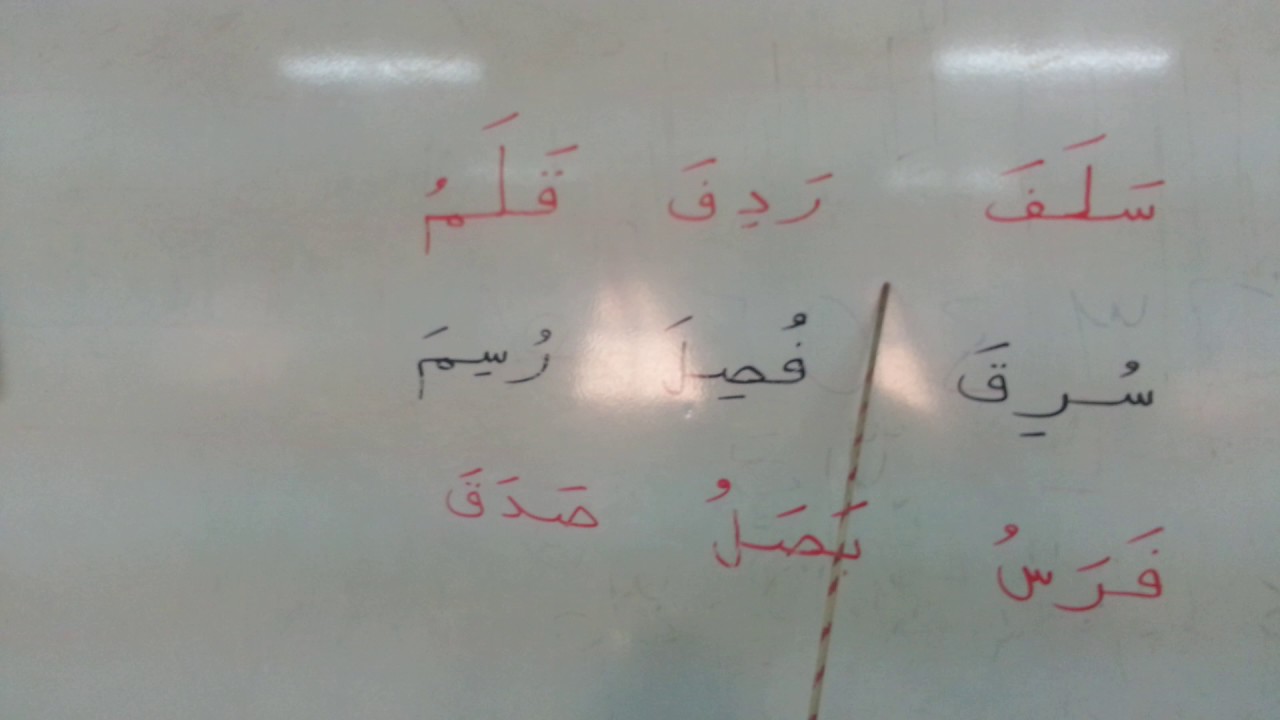 سَلَفَ رَدِفَ قَلَمُ
سُرِقَ فُصِلَ رُسِمَ
فَرَسُ بَصَلُ صَدَقَ